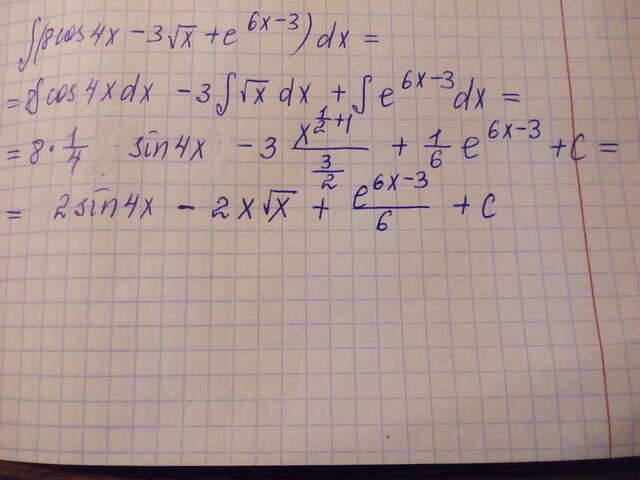 ∫(8cos4x − 3√x + e^(6x−3)) dx =
= 8∫cos4xdx − 3∫√x dx + ∫e^(6x−3) dx =
= 8·1/4 sin4x − 3 x^(1/2+1)/(3/2) + 1/6 e^(6x−3) + C =
= 2sin4x − 2x√x + e^(6x−3)/6 + C